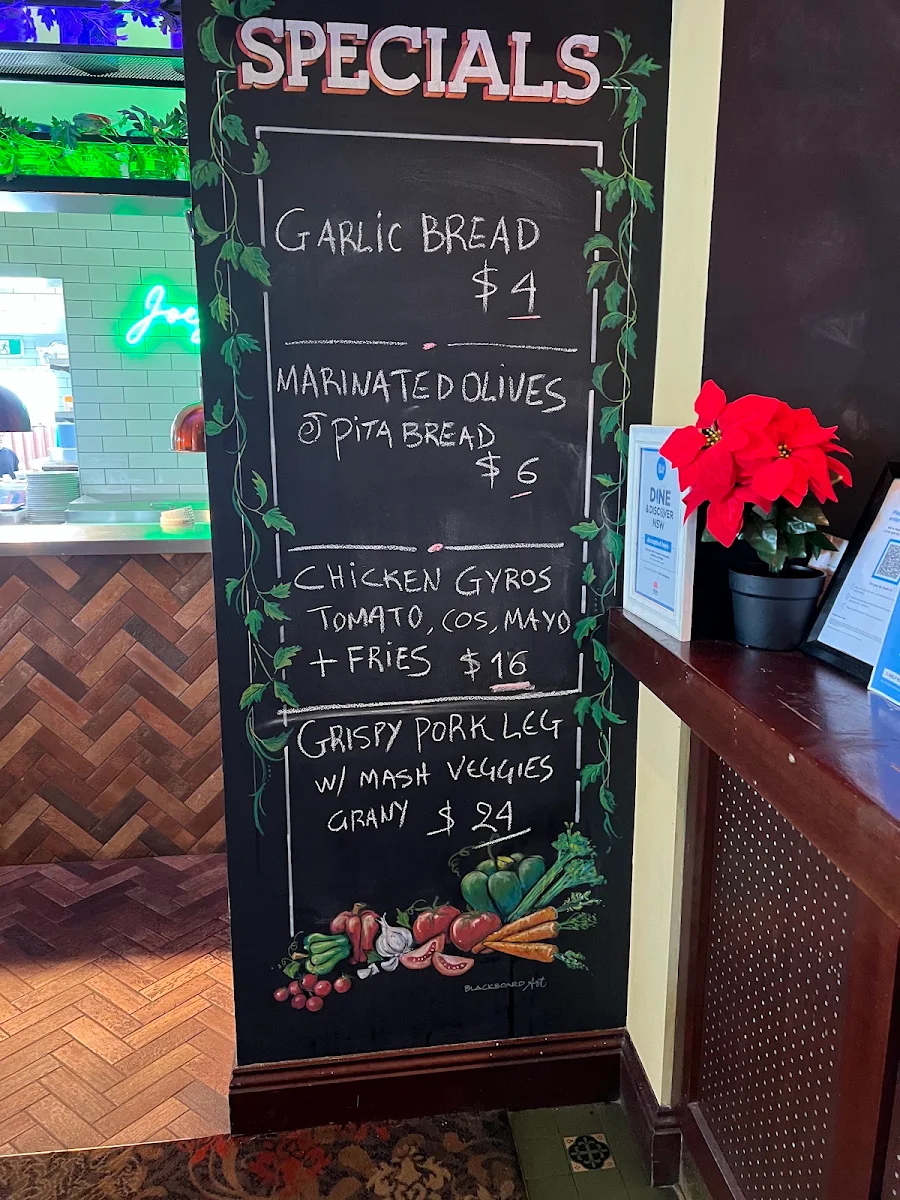 SPECIALS
GARLIC BREAD
$4
MARINATED OLIVES
@ PITA BREAD
$6
CHICKEN GYROS
TOMATO, COS, MAYO
+ FRIES $16
GRISPY PORK LEG
W/ MASH VEGGIES
GRANY $24
BLACKBOARD Art
Joe
DINE
& DISCOVER
NSW
Accepted here